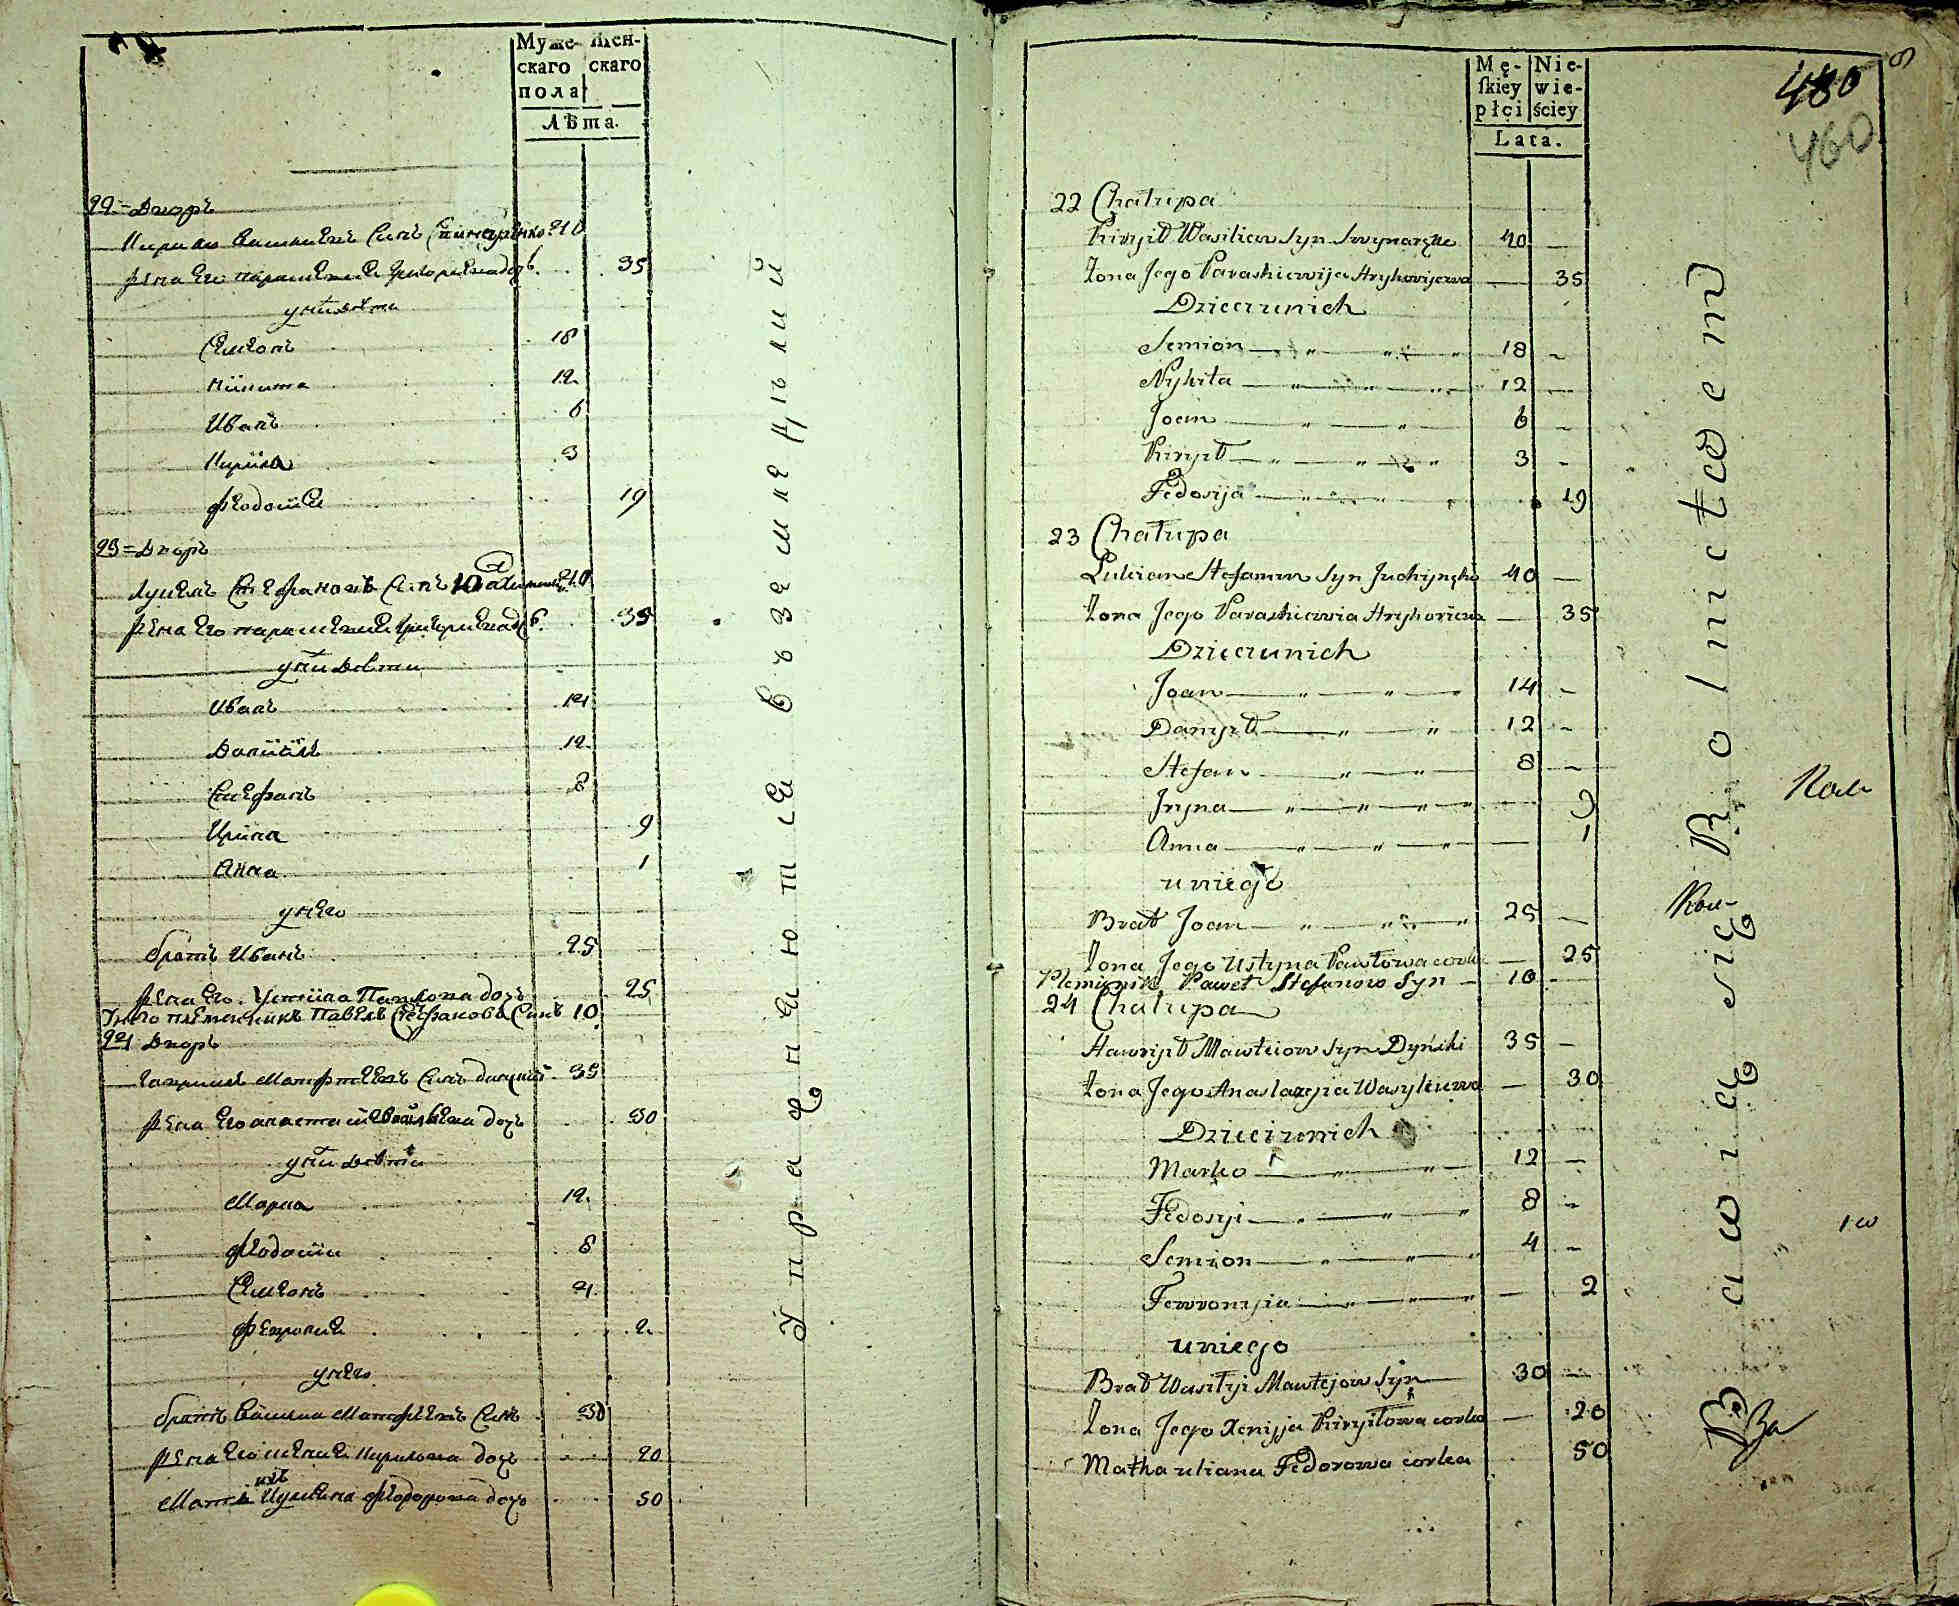 Муже- Жен-
скаго скаго
пола
Лѣта.
22 = Дворъ
Кирило Василиевъ Синъ 40
жена Его параскевия григориева дочь 35
у них дѣти
Симеонъ 18
Никита 12
Иванъ 6
Кирила 3
Феодосия 19
23 = Дворъ
Лукиянъ Стефановъ Синъ 40
жена Его параскевия григориева доч 35
у них дѣти
Иванъ 14
Даниилъ 12
Стефанъ 8
Ирина 9
Анна 1
у него
братъ Иванъ 25
жена Его Устина Павлова дочь 25
У него племенникъ Павелъ Стефановъ Синъ 10
24 Дворъ
Гаврилъ Матфиевъ Синъ 35
жена Его анастасия Василиева дочь 30
у них дѣти
Марко 12
Феодосии 8
Симеонъ 4
Феврония 2
у него
братъ Василий Матфиевъ Синъ 30
жена Его Ксения Кирилова дочь 20
Мать ихъ Иулияна Феодорова дочь 50
Упражняются въ земледѣлии
480
460
Mę- Nie-
ſkiey wie-
płci ściey
Lata.
22 Chałupa
Kiryło Wasiliew Syn 40 —
Żona Jego Paraskiewija Hryhorijewa — 35
Dzieci u nich
Semion — 18 —
Nykita — 12 —
Joan — 6 —
Kiryło — 3 —
Fedosija — 19
23 Chałupa
Łukian Stefanow Syn 40 —
Żona Jego Paraskiewia Hryhoriewa — 35
Dzieci u nich
Joan — 14 —
Danyło — 12 —
Stefan — 8 —
Jryna — 9
Anna — 1
u niego
Brat Joan — 25 —
Żona Jego Ustyna Pawłowa corka — 25
Plemięnik Paweł Stefanow Syn — 10 —
24 Chałupa
Hawryło Mawtiiow Syn Dyński 35 —
Żona Jego Anastazyia Wasylewa — 30
Dzieci u nich
Marko — 12 —
Fedosyi — 8 —
Semion — 4 —
Fewronyia — 2
u niego
Brat Wasilyi Mawtejow Syn 30 —
Żona Jego Xenija Kiryłowa corka — 20
Matka uliana Fedorowa corka 50
Bawią się Rolnictwem